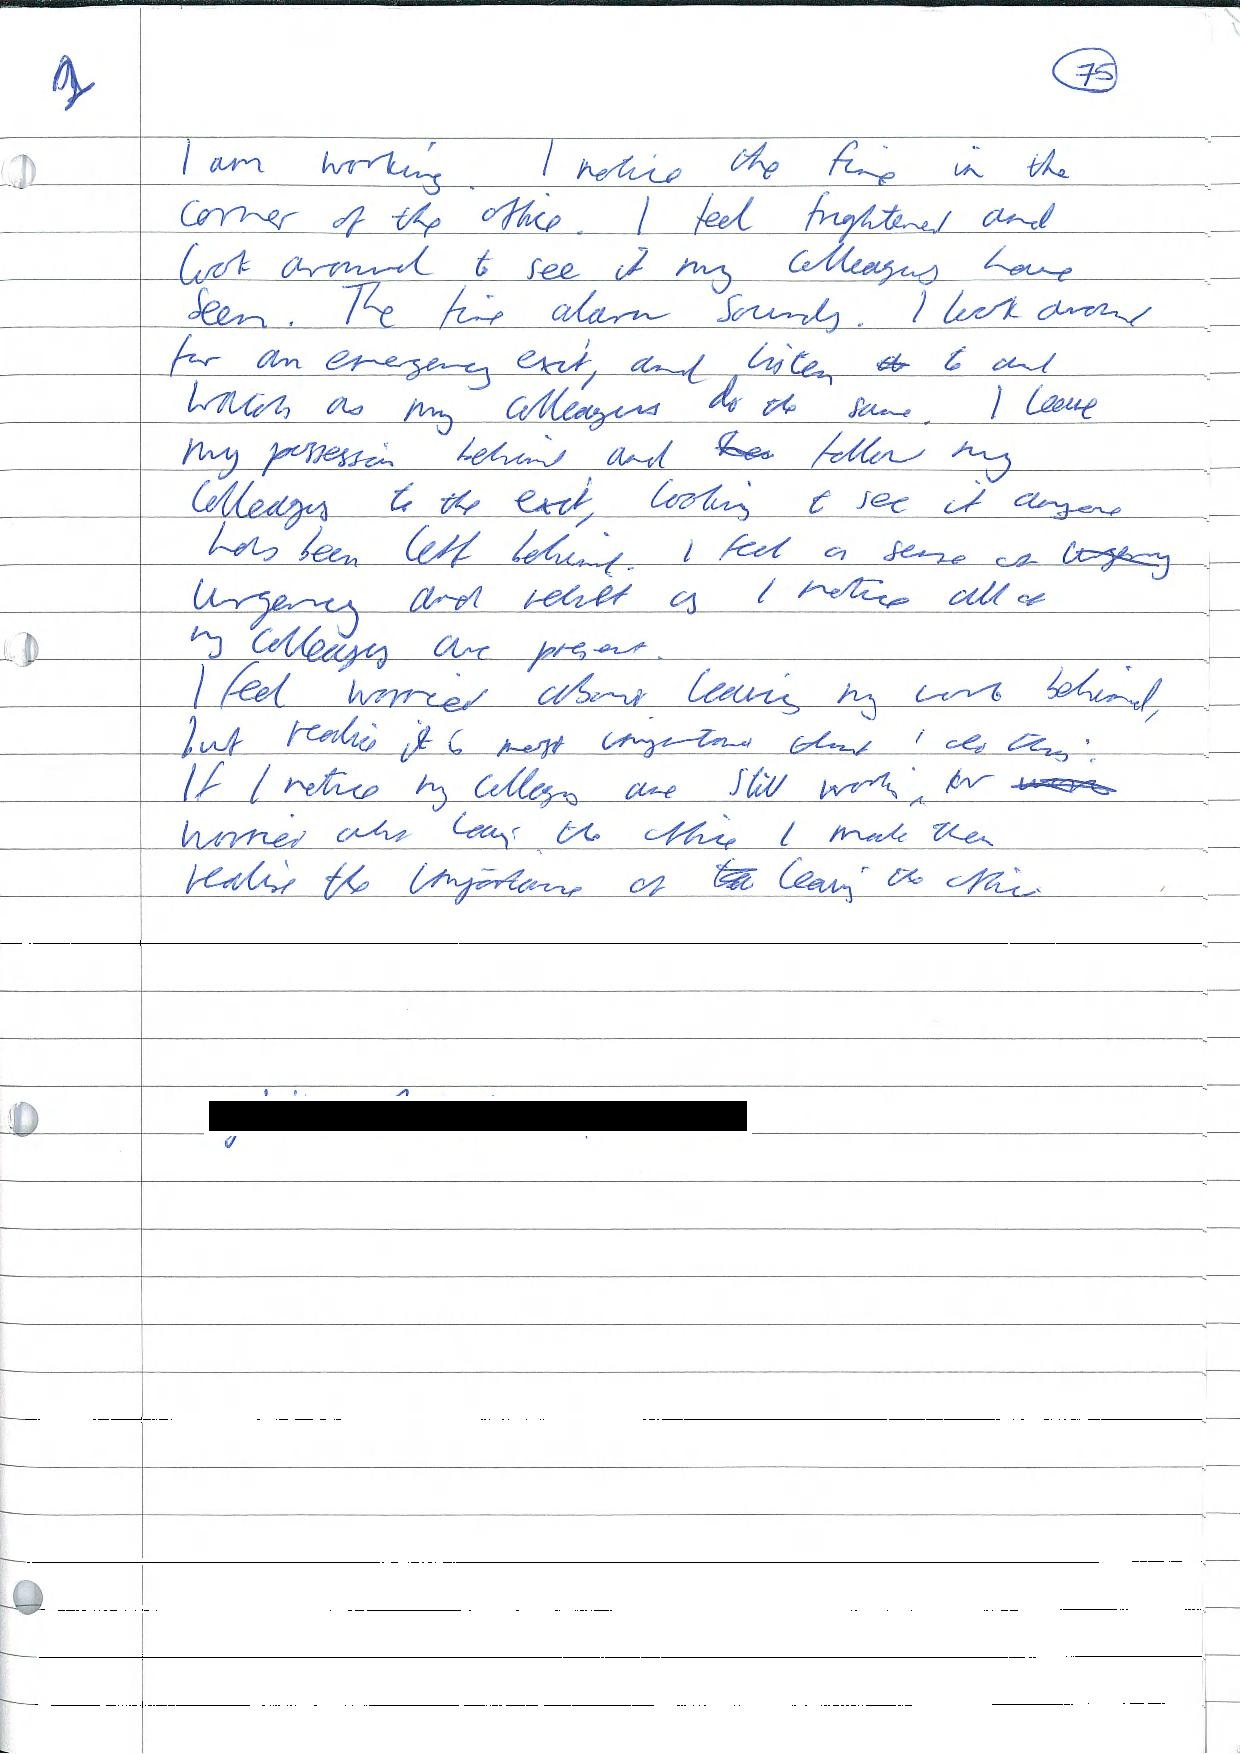 75
I am working. I notice the fire in the
corner of the office. I feel frightened and
look around to see if my colleagues have
seen. The fire alarm sounds. I look around
for an emergency exit, and listen to and
watch as my colleagues do the same. I leave
my possession behind and follow my
colleages to the exit, looking to see if anyone
has been left behind. I feel a sense of urgency
urgency and relief as I notice all of
my colleages are present.
I feel worried about leaving my work behind,
but realise it is most important that I do this.
If I notice my colleges are still working, or
worried about leaving the office I make them
realise the importance of leaving the office